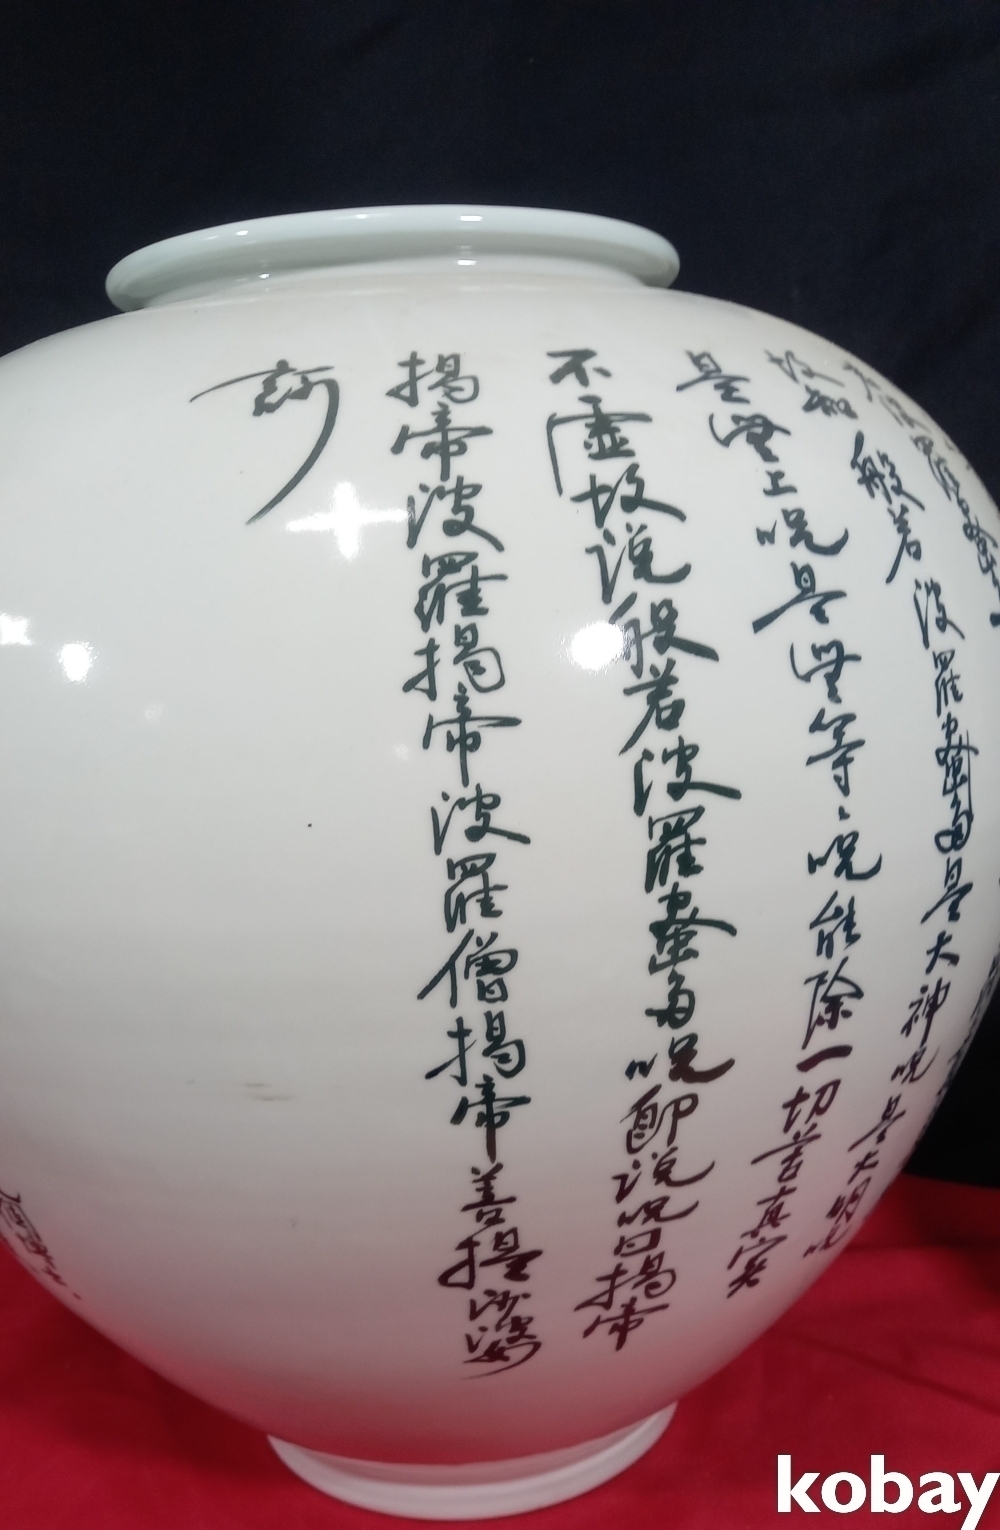 波羅蜜
般若波羅蜜多是大神呪是大明呪
故知
是無上呪是無等〻呪能除一切苦真實
不虛故説般若波羅蜜多呪即説呪曰揭帝
揭帝波羅揭帝波羅僧揭帝菩提沙婆
訶
kobay